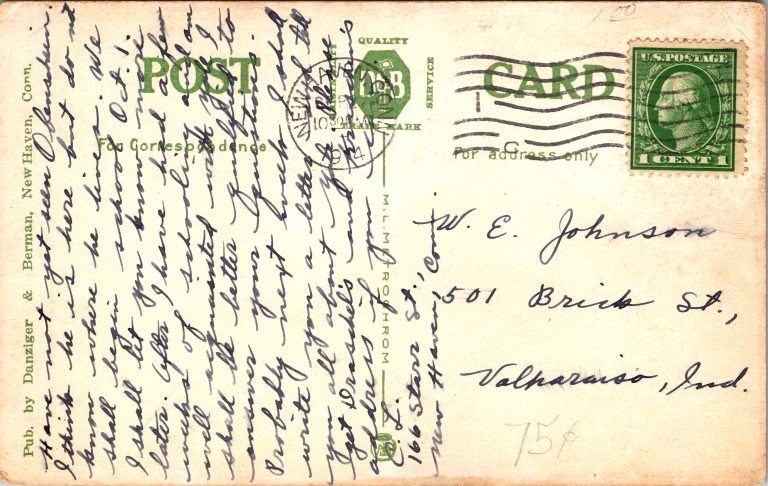 Pub. by Danziger & Berman, New Haven, Conn.
POST CARD
QUALITY
SERVICE
D&B
TRADE MARK
For Correspondence
For address only
M.L. METROCHROM
NEW HAVEN
CONN
1914
U.S. POSTAGE
1 CENT 1
Have not yet seen
I think he is here but do not
know where he lives. We
shall begin school Oct 1.
I shall let you know more
later. After I have had a few
weeks of schooling and am
well acquainted with Yale I
shall be better qualified to
answer your questions.
Probably next week I shall
write you a letter and tell
you all about Yale. Please
get Draschel's and
address if you see
166 Starr St.,
New Haven, Conn.
W. E. Johnson
501 Brick St.,
Valparaiso, Ind.
75¢